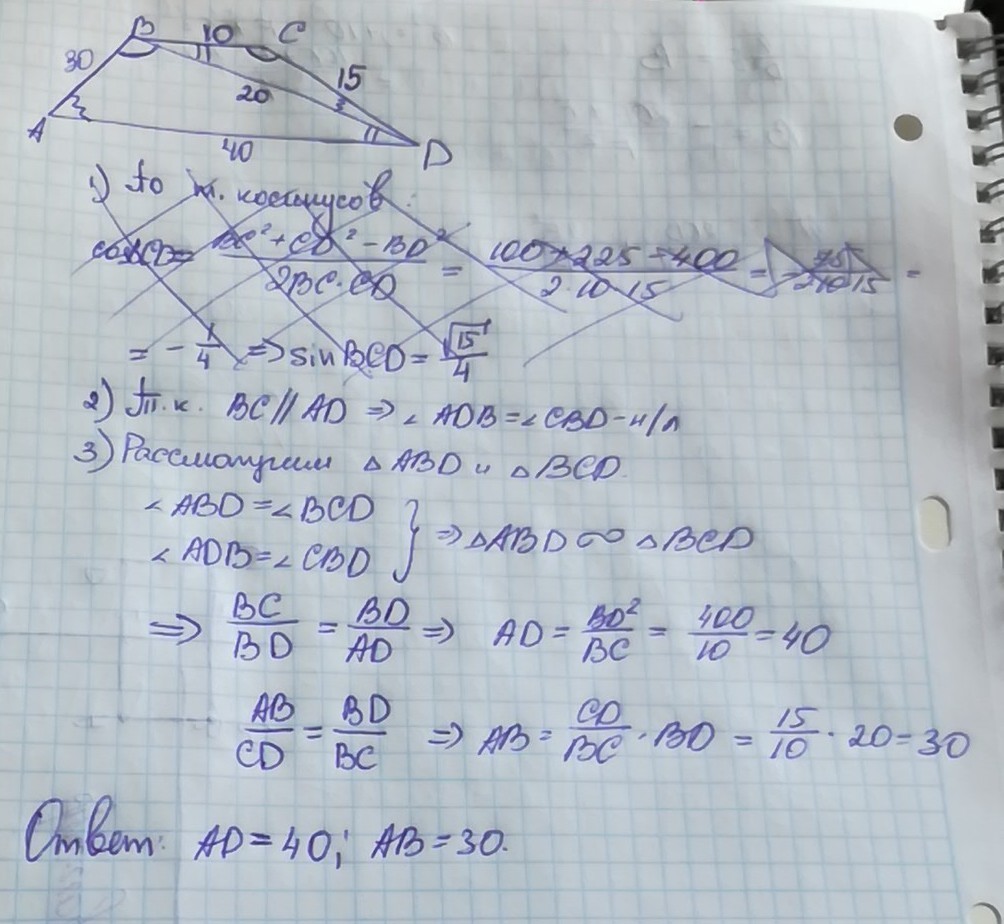 B 10 C
30 15
20
A 40 D
1) По т. косинусов:
cosBCD = BC² + CD² - BD² / 2BC·CD = 100 + 225 - 400 / 2·10·15 = - 75 / 2·10·15 =
= - 1/4 ⇒ sin BCD = √15/4
2) Т.к. BC // AD ⇒ ∠ADB = ∠CBD - н/л
3) Рассмотрим △ABD и △BCD.
∠ABD = ∠BCD
∠ADB = ∠CBD } ⇒ △ABD ∞ △BCD
⇒ BC/BD = BD/AD ⇒ AD = BD²/BC = 400/10 = 40
AB/CD = BD/BC ⇒ AB = CD/BC · BD = 15/10 · 20 = 30
Ответ: AD = 40; AB = 30.